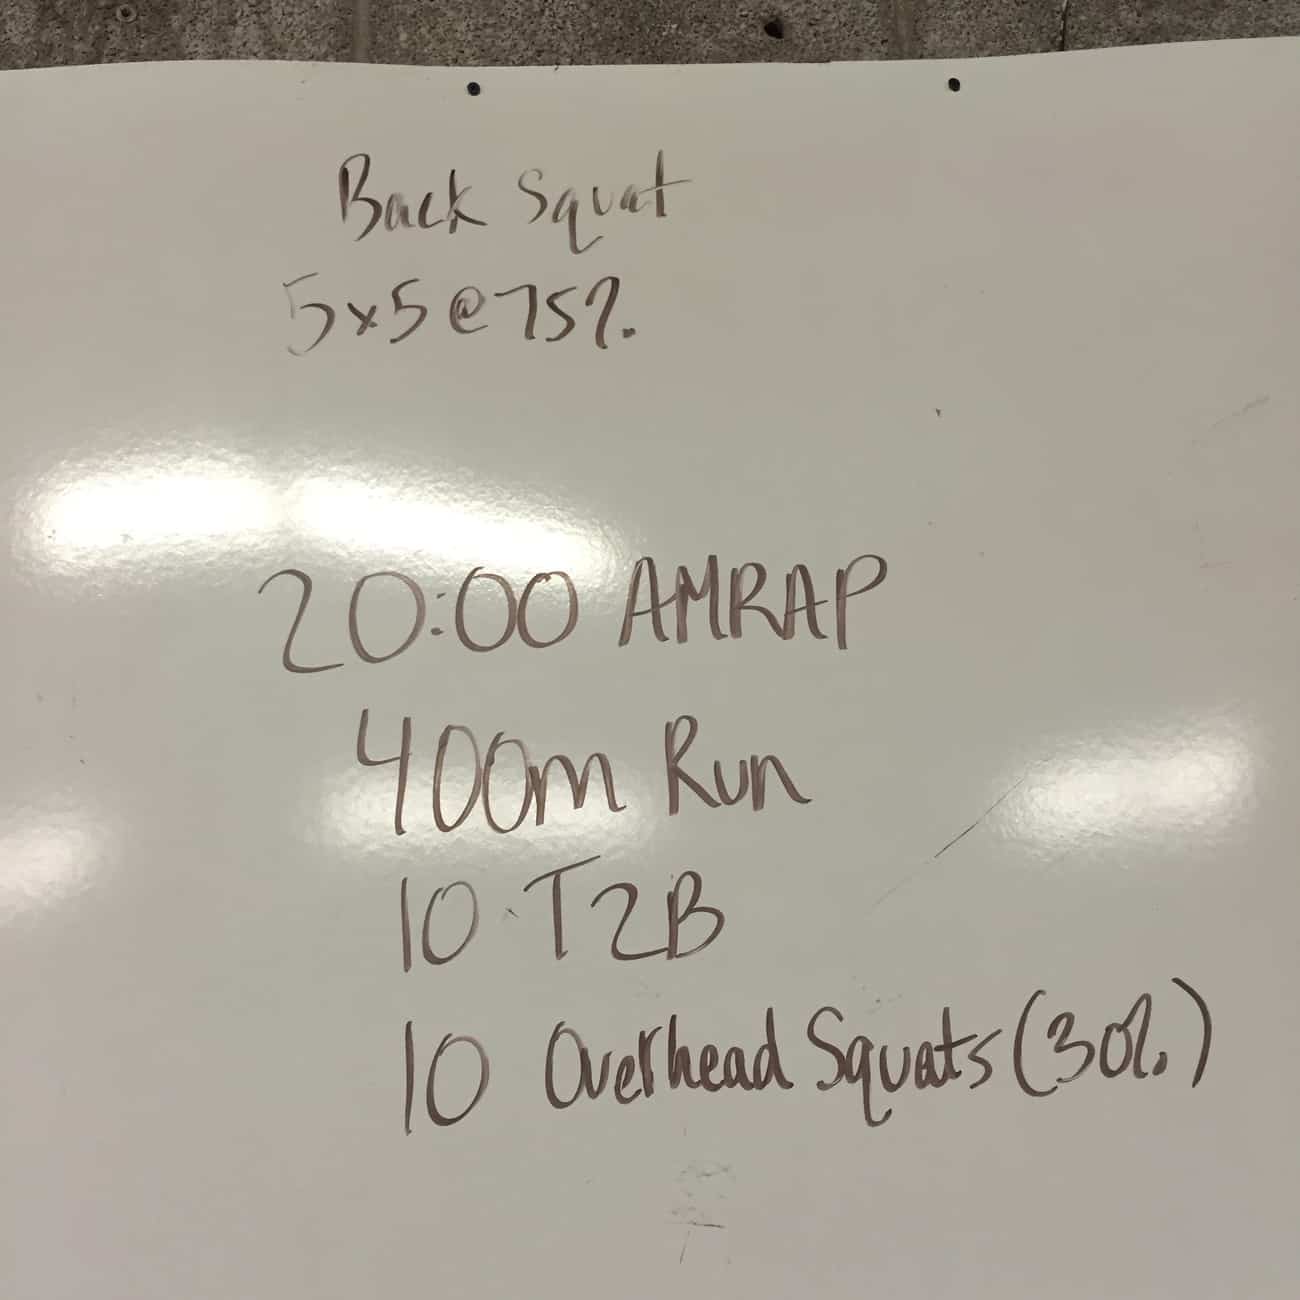 Back Squat
5x5@75%
20:00 AMRAP
400m Run
10 T2B
10 Overhead Squats (30%)